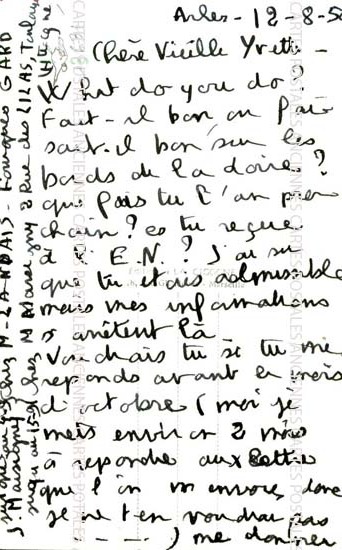 Arles - 12-8-5
Chère Vieille Yvette -
What do you do?
Fait-il bon au
saut. il bon sur les
bords de la doire?
que fais tu l'an pro
chain? es tu reçue
à l'E.N.? J'ai su
que tu étais admissible
mais mes informations
s'arrêtent là.
Voudrais tu si tu me
reponds avant le mois
d'octobre (moi je
mets environ 2 mois
à repondre aux lettres
que l'on m'envoie, donc
je ne t'en voudrai pas
- - - -) me donner
chez M. LANDAIS - Fourques GARD
chez M 2 Rue des LILAS,
CARTES POSTALES ANCIENNES